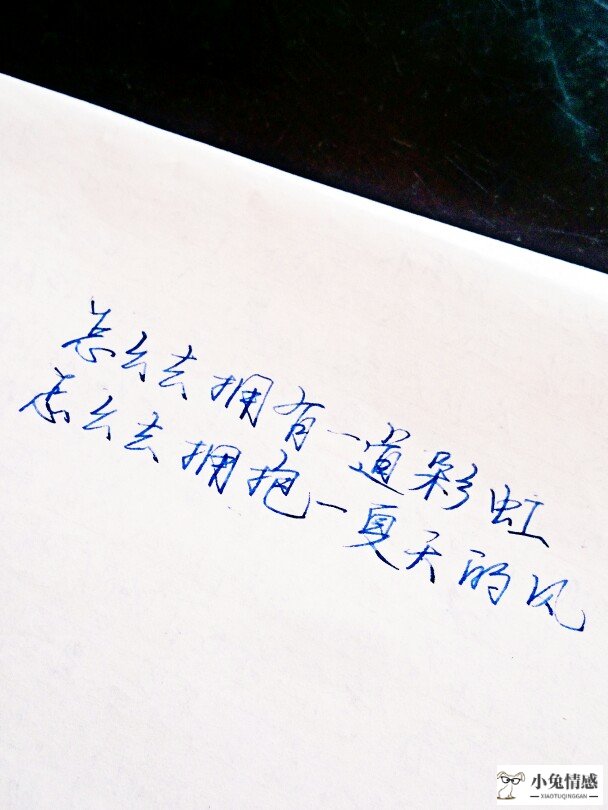 怎么去拥有一道彩虹
怎么去拥抱一夏天的风
小兔情感
XIAOTUQINGGAN